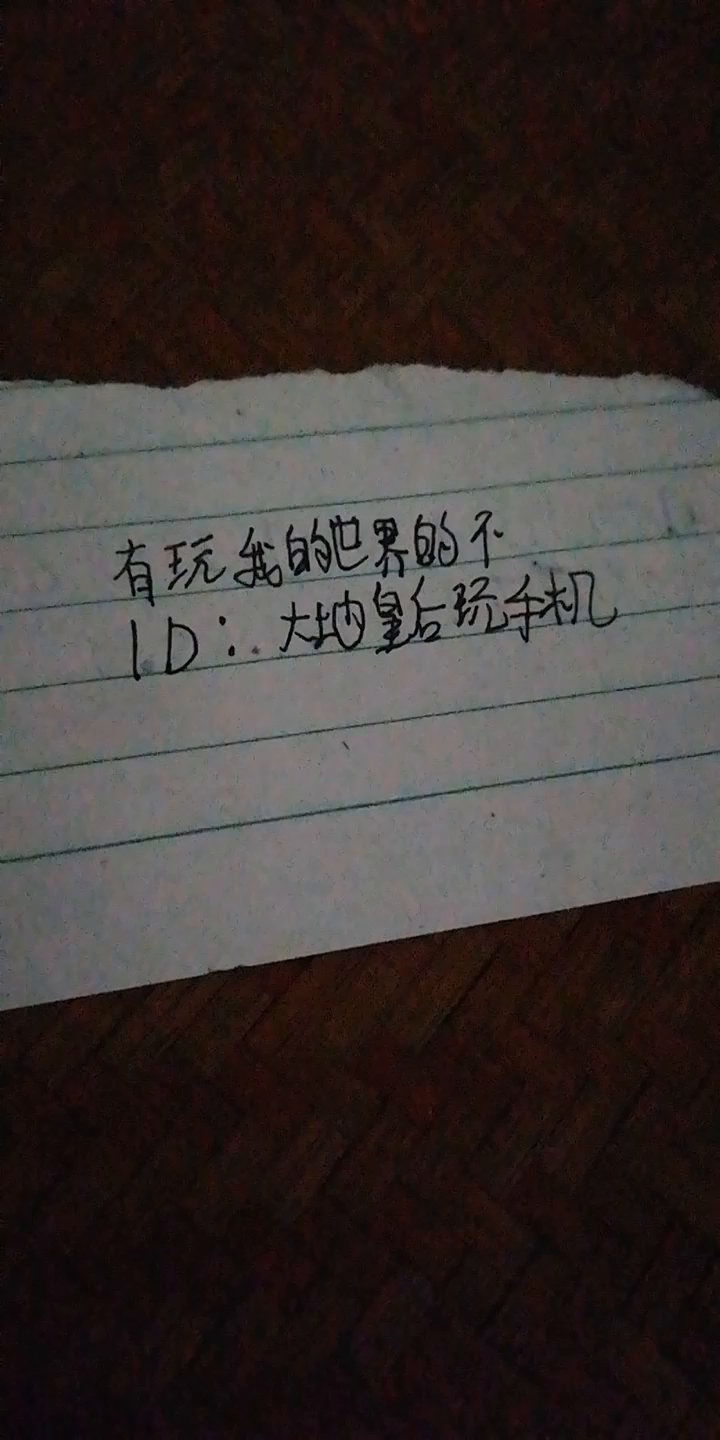 有玩我的世界的不
ID：大地皇后玩手机